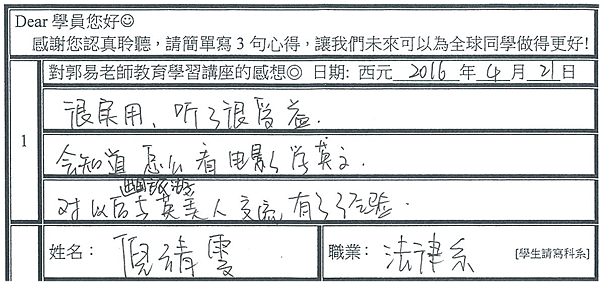 Dear 學員您好☺
感謝您認真聆聽，請簡單寫 3 句心得，讓我們未來可以為全球同學做得更好!
對郭易老師教育學習講座的感想◎ 日期: 西元 2016 年 4 月 21 日
1
很实用、听了很受益.
会知道 怎么 看 电影 学英文.
对以后与英美人交流, 有了了经验.
姓名： 倪靖雯 職業： 法律系 [學生請寫科系]